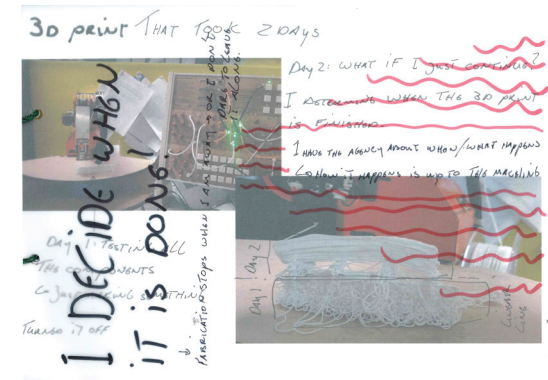 3D PRINT THAT TOOK 2 DAYS
DAY 2: WHAT IF I JUST CONTINUE?
I DETERMINE WHEN THE 3D PRINT
IS FINISHED.
I HAVE THE AGENCY ABOUT WHEN/WHAT HAPPENS
HOW IT HAPPENS IS UP TO THE MACHINE
I DECIDE WHEN
IT IS DONE!
FABRICATION STOPS WHEN I AM AWAY OR I DON'T
DARE TO LEAVE
IT ALONE.
DAY 1: TESTING ALL
THE COMPONENTS
TURNED IT OFF
Day 2
Day 1: